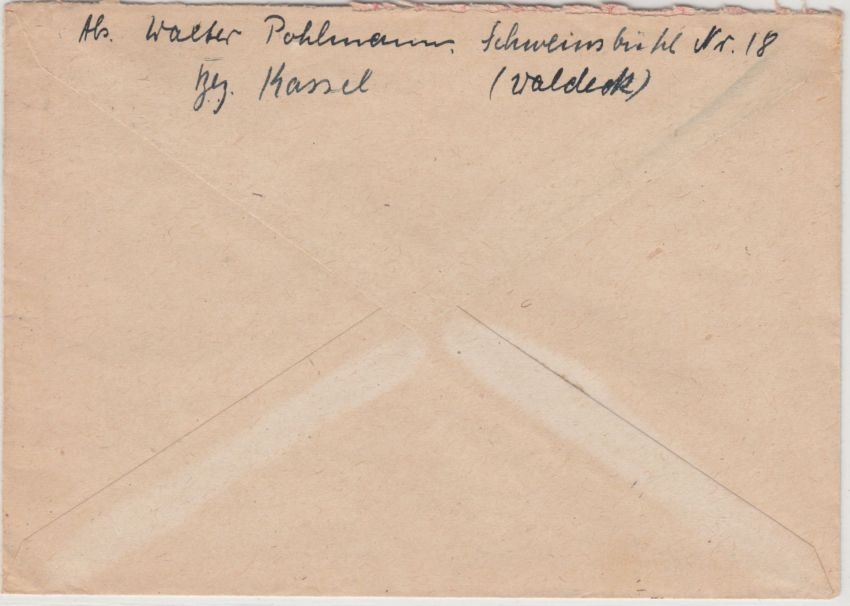 Abs. Walter Pohlmann. Schweinsbühl Nr. 18
Bez. Kassel (Waldeck)